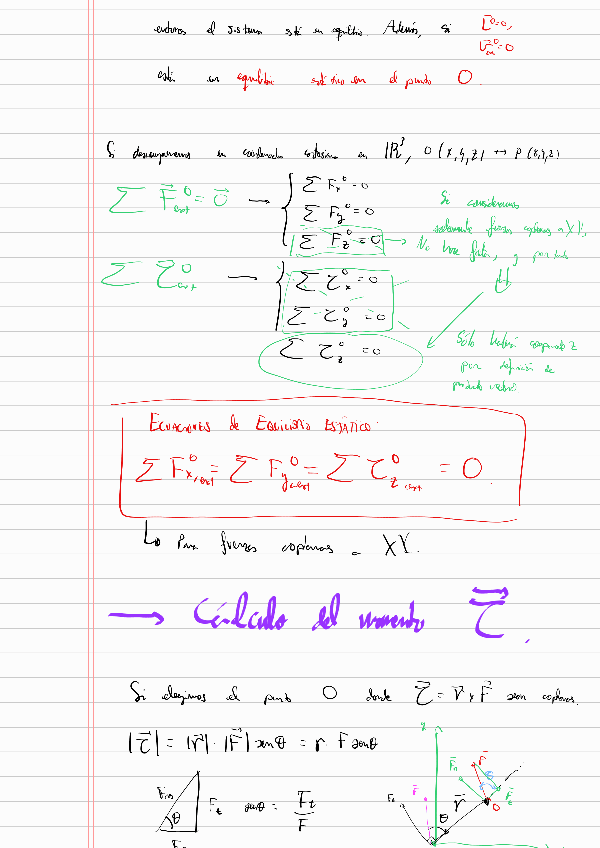 entonces el sistema está en equilibrio. Además, si L⁰=0,
V⁰cm=0
está en equilibrio estático en el punto O.
Si descomponemos en coordenadas cartesianas en ℝ³, O(x,y,z) ↔ P(x,y,z)
∑ F⃗⁰ext = 0⃗ → { ∑ Fx⁰ = 0
∑ Fy⁰ = 0
∑ Fz⁰ = 0 → No hace falta, y por tanto
Si consideramos
solamente fuerzas coplanares a XY,
∑ τ⃗⁰ext → { ∑ τx⁰ = 0
∑ τy⁰ = 0
∑ τz⁰ = 0
Sólo habrá componente z
por definición de
producto vectorial
Ecuaciones de Equilibrio Estático:
∑ F⁰x,ext = ∑ F⁰y,ext = ∑ τ⁰z,ext = 0.
↳ Para fuerzas coplanares a XY.
→ Cálculo del momento τ⃗.
Si elegimos el punto O donde τ⃗ = r⃗ x F⃗ son coplanares.
|τ⃗| = |r⃗|·|F⃗| senθ = r F senθ
θ Ft senθ = Ft/F
z
F⃗
r⃗
θ
O